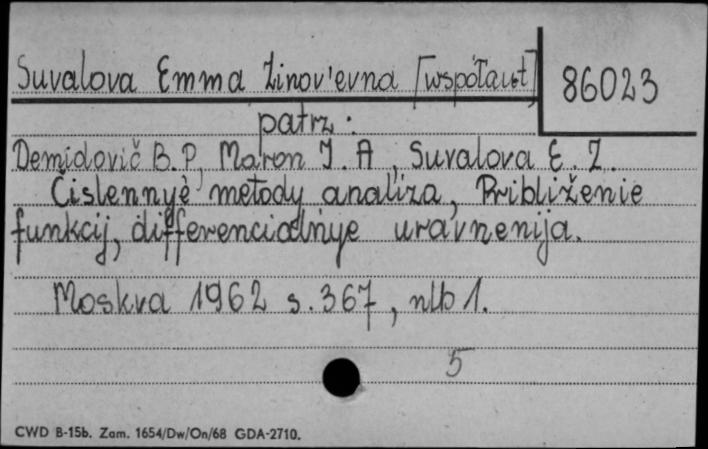 Suvalova Emma Zinov'evna [współaut]
86023
patrz:
Demidovič B.P, Maron I.A, Suvalova E.Z.
Čislennyè metody analiza, Približenie
funkcij, differencialnye uravnenija.
Moskva 1962 s. 367, nlb 1.
5
CWD B-15b. Zam. 1654/Dw/On/68 GDA-2710.